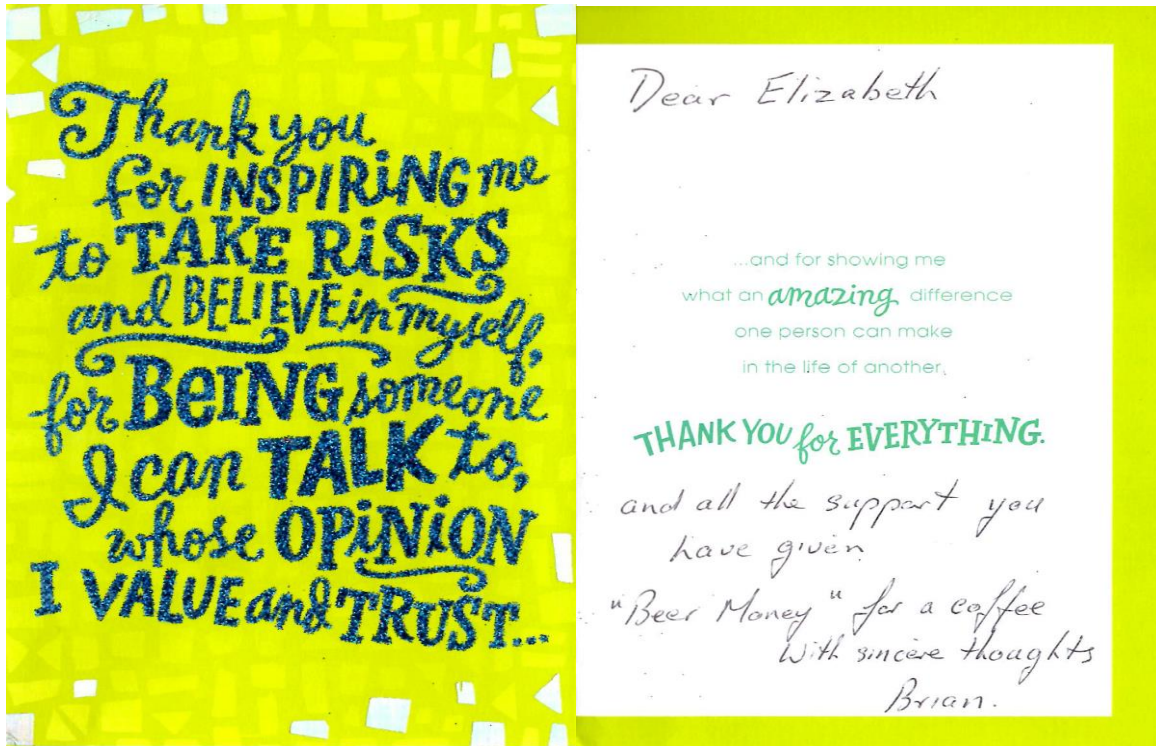 Thank you
for INSPIRING me
to TAKE RISKS
and BELIEVE in myself,
for BEING someone
I can TALK to,
whose OPINION
I VALUE and TRUST...
Dear Elizabeth
...and for showing me
what an amazing difference
one person can make
in the life of another.
THANK YOU for EVERYTHING.
and all the support you
have given
"Beer Money" for a coffee
With sincere thoughts
Brian.